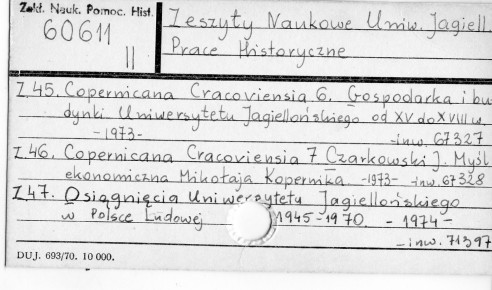 Zakł. Nauk. Pomoc. Hist.
60611
II
Zeszyty Naukowe Uniw. Jagiell.
Prace Historyczne
Z. 45. Copernicana Cracoviensia 6. Gospodarka i bu
dynki Uniwersytetu Jagiellońskiego od XV do XVIII w.
-1973- -inw. 67327
Z. 46. Copernicana Cracoviensia 7 Czarkowski J. Myśl
ekonomiczna Mikołaja Kopernika -1973- inw. 67328
Z 47. Osiągnięcia Uniwersytetu Jagiellońskiego
w Polsce Ludowej 1945-1970. - 1974 -
- inw. 71397
DUJ. 693/70. 10 000.